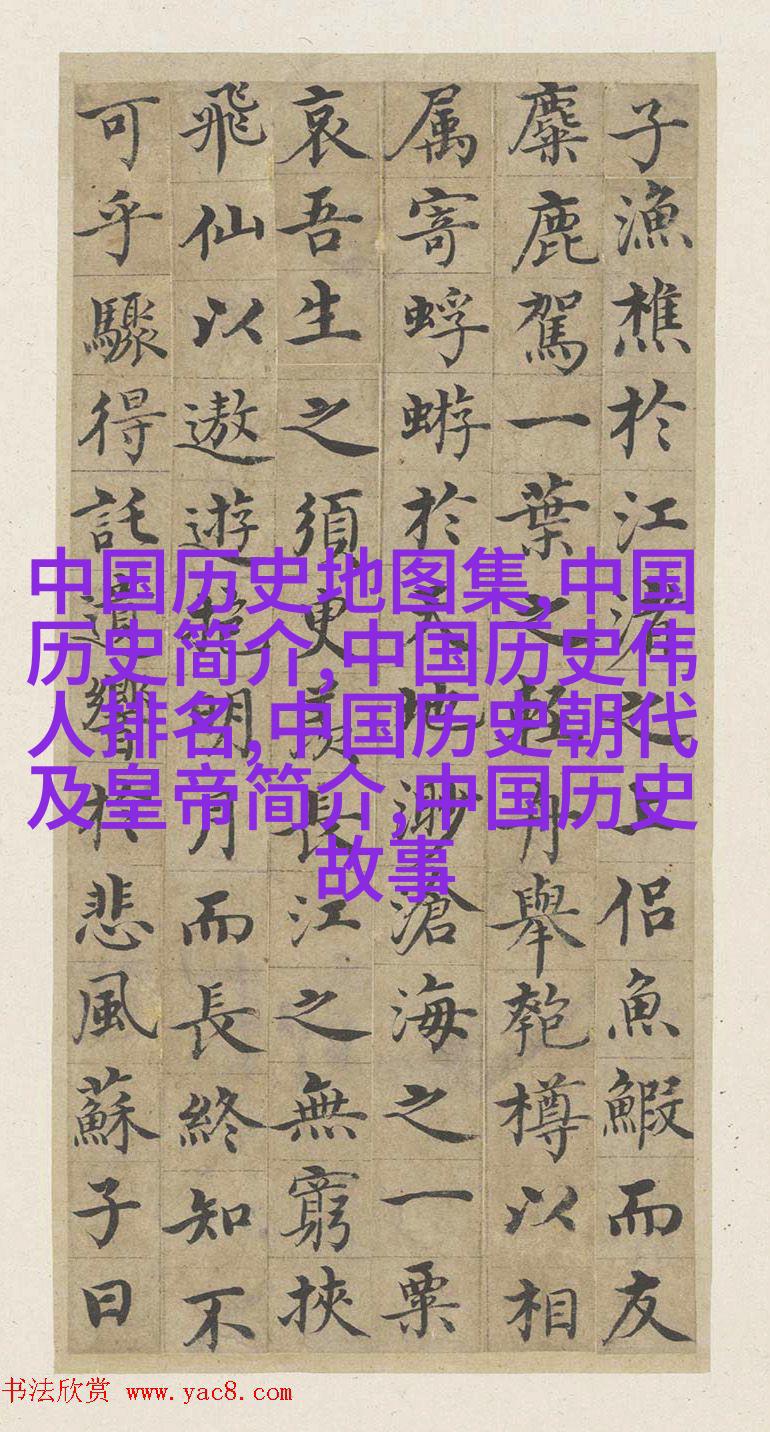 子漁樵於江渚之上侶魚鰕而友
麋鹿駕一葉之輕舟舉匏樽以相
属寄蜉蝣於天地渺滄海之一粟
哀吾生之須臾羡長江之無窮挾
飛仙以遨遊抱明月而長終知不
可乎驟得託遺響於悲風蘇子曰
中国历史地图集,中国
历史简介,中国历史伟
人排名,中国历史朝代
及皇帝简介,中国历史
故事
书法欣赏 www.yac8.com